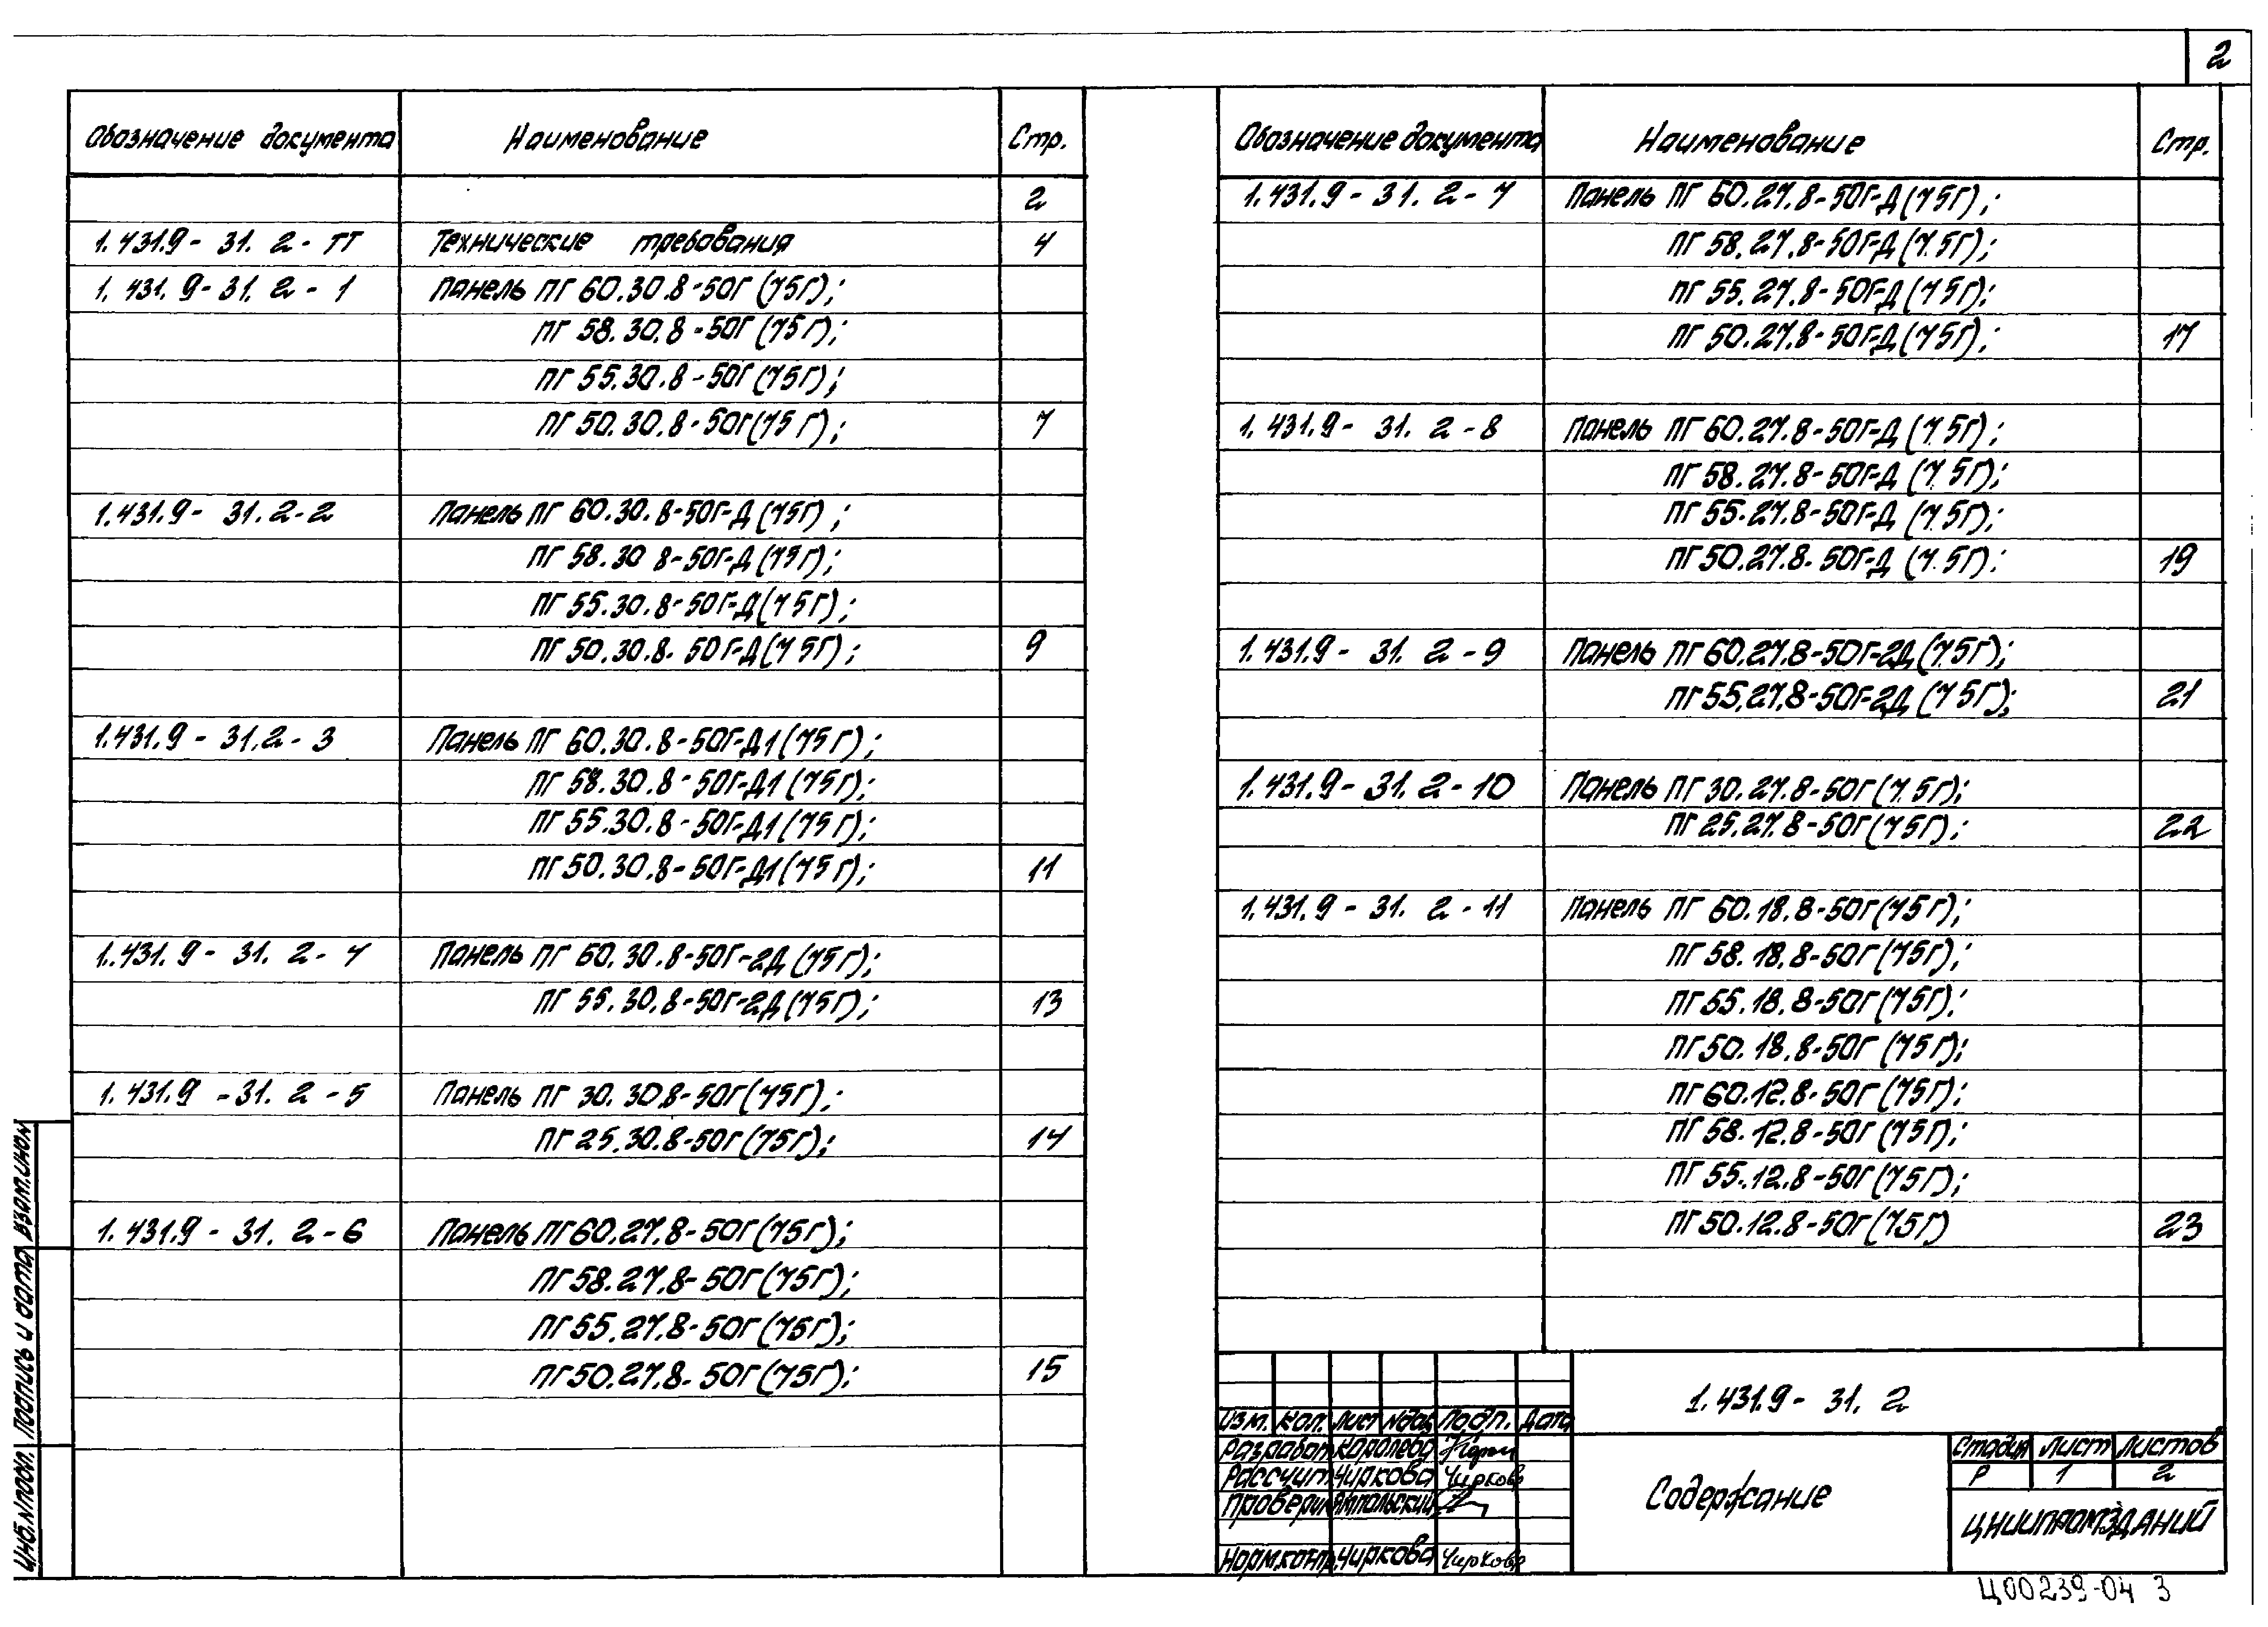 2
Обозначение документа Наименование Стр.
2
1.431.9 - 31. 2 - ТТ Технические требования 4
1. 431. 9 - 31. 2 - 1 Панель ПГ 60.30.8-50Г (75Г);
ПГ 58.30.8-50Г (75Г);
ПГ 55.30.8-50Г (75Г);
ПГ 50.30.8-50Г (75Г); 7
1.431.9 - 31. 2-2 Панель ПГ 60.30.8-50Г-Д (75Г);
ПГ 58.30 8-50Г-Д (75Г);
ПГ 55.30.8-50Г-Д (75Г);
ПГ 50.30.8-50Г-Д (75Г); 9
1.431.9 - 31.2 - 3 Панель ПГ 60.30.8-50Г-Д1 (75Г);
ПГ 58.30.8-50Г-Д1 (75Г);
ПГ 55.30.8-50Г-Д1 (75Г);
ПГ 50.30.8-50Г-Д1 (75Г); 11
1.431.9 - 31. 2 - 4 Панель ПГ 60.30.8-50Г-2Д (75Г);
ПГ 55.30.8-50Г-2Д (75Г); 13
1.431.9 - 31. 2 - 5 Панель ПГ 30.30.8-50Г (75Г);
ПГ 25.30.8-50Г (75Г); 14
1.431.9 - 31. 2 - 6 Панель ПГ 60.27.8-50Г (75Г);
ПГ 58.27.8-50Г (75Г);
ПГ 55.27.8-50Г (75Г);
ПГ 50.27.8-50Г (75Г); 15
Обозначение документа Наименование Стр.
1.431.9 - 31. 2 - 7 Панель ПГ 60.27.8-50Г-Д (75Г);
ПГ 58.27.8-50Г-Д (75Г);
ПГ 55.27.8-50Г-Д (75Г);
ПГ 50.27.8-50Г-Д (75Г); 17
1.431.9 - 31. 2 - 8 Панель ПГ 60.27.8-50Г-Д (75Г);
ПГ 58.27.8-50Г-Д (75Г);
ПГ 55.27.8-50Г-Д (75Г);
ПГ 50.27.8-50Г-Д (75Г). 19
1.431.9 - 31. 2 - 9 Панель ПГ 60.27.8-50Г-2Д (75Г);
ПГ 55.27.8-50Г-2Д (75Г); 21
1.431.9 - 31. 2 - 10 Панель ПГ 30.27.8-50Г (75Г);
ПГ 25.27.8-50Г (75Г); 22
1.431.9 - 31. 2 - 11 Панель ПГ 60.18.8-50Г (75Г);
ПГ 58.18.8-50Г (75Г);
ПГ 55.18.8-50Г (75Г);
ПГ 50.18.8-50Г (75Г);
ПГ 60.12.8-50Г (75Г);
ПГ 58.12.8-50Г (75Г);
ПГ 55.12.8-50Г (75Г);
ПГ 50.12.8-50Г (75Г) 23
Инв.№подл. Подпись и дата Взам.инв№
1.431.9 - 31. 2
Изм. Кол. Лист №док Подп. Дата
Разработ Королева
Рассчит Чиркова Чиркова
Проверил Ямпольский
Норм.контр. Чиркова Чиркова
Содержание
Стадия Лист Листов
Р 1 2
ЦНИИПРОМЗДАНИЙ
Ц00239-04 3